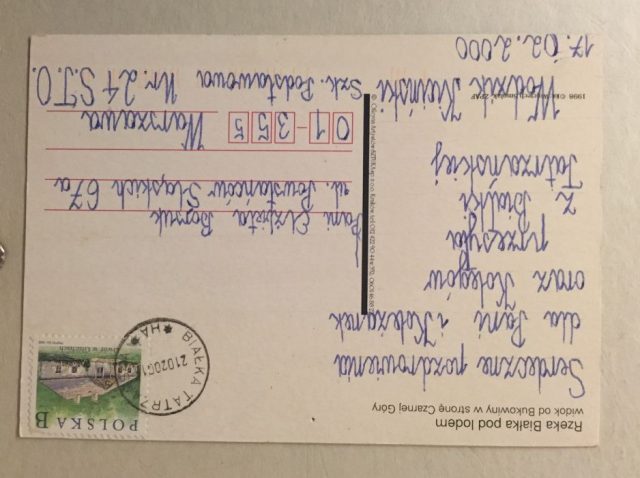 Rzeka Białka pod lodem
widok od Bukowiny w stronę Czarnej Góry
Serdeczne pozdrowienia
dla Pani i Koleżanek
oraz Kolegów
przesyła
z Białki
Tatrzańskiej
17.02.2000
POLSKA B
BIAŁKA TATRZ
210200
Pani Elżbieta
ul. Powstańców Śląskich 67a
01-355 Warszawa
Szk. Podstawowa
Nr. 24 S.T.O.